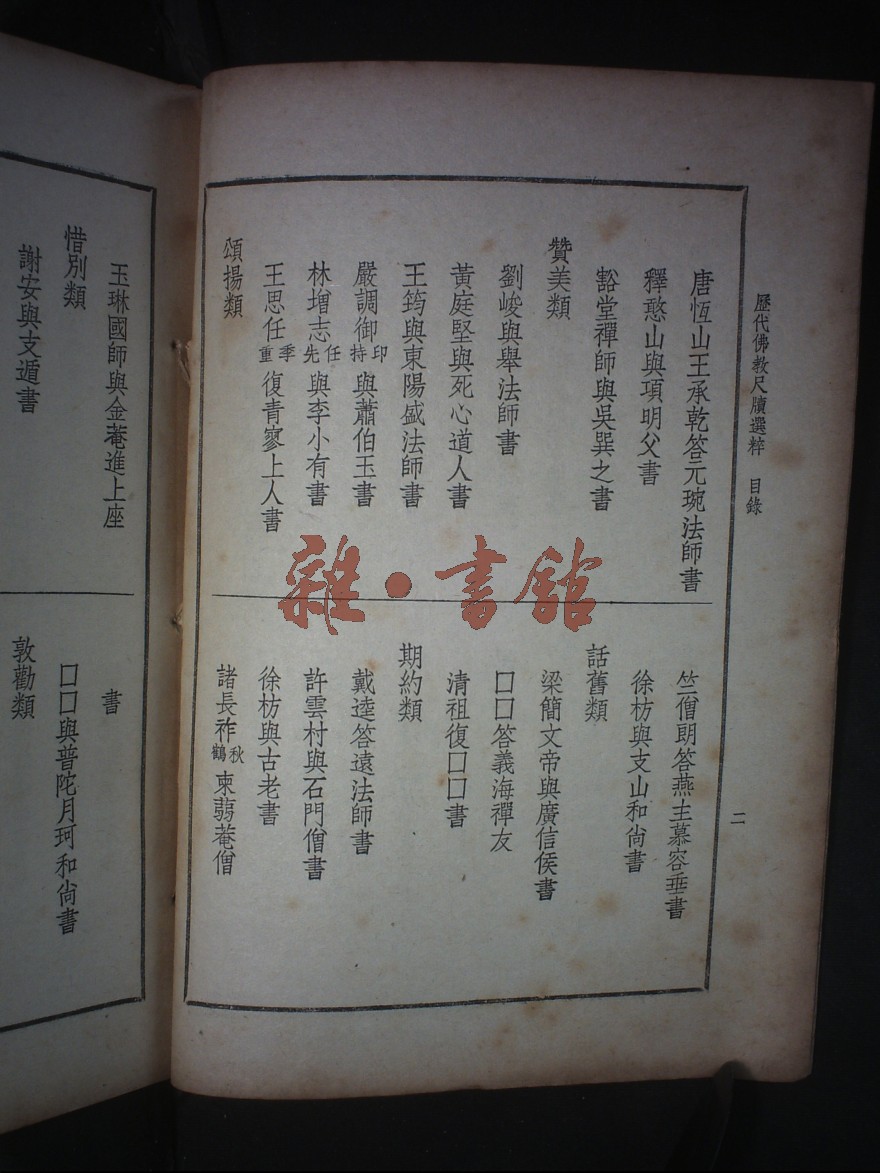 歷代佛教尺牘選粹　目錄
二
唐恆山王承乾答元琬法師書
釋憨山與項明父書
豁堂禪師與吳巽之書
贊美類
劉峻與舉法師書
黃庭堅與死心道人書
王筠與東陽盛法師書
嚴調御印持與蕭伯玉書
林增志任先與李小有書
王思任季重復青寥上人書
頌揚類
竺僧朗答燕主慕容垂書
徐枋與支山和尙書
話舊類
梁簡文帝與廣信侯書
口口答義海禪友
清祖復口口書
期約類
戴逵答遠法師書
許雲村與石門僧書
徐枋與古老書
諸長祚秋鶴柬蒻菴僧
玉琳國師與金菴進上座
惜別類
謝安與支遁書
書
口口與普陀月珂和尙書
敦勸類
雜·書館